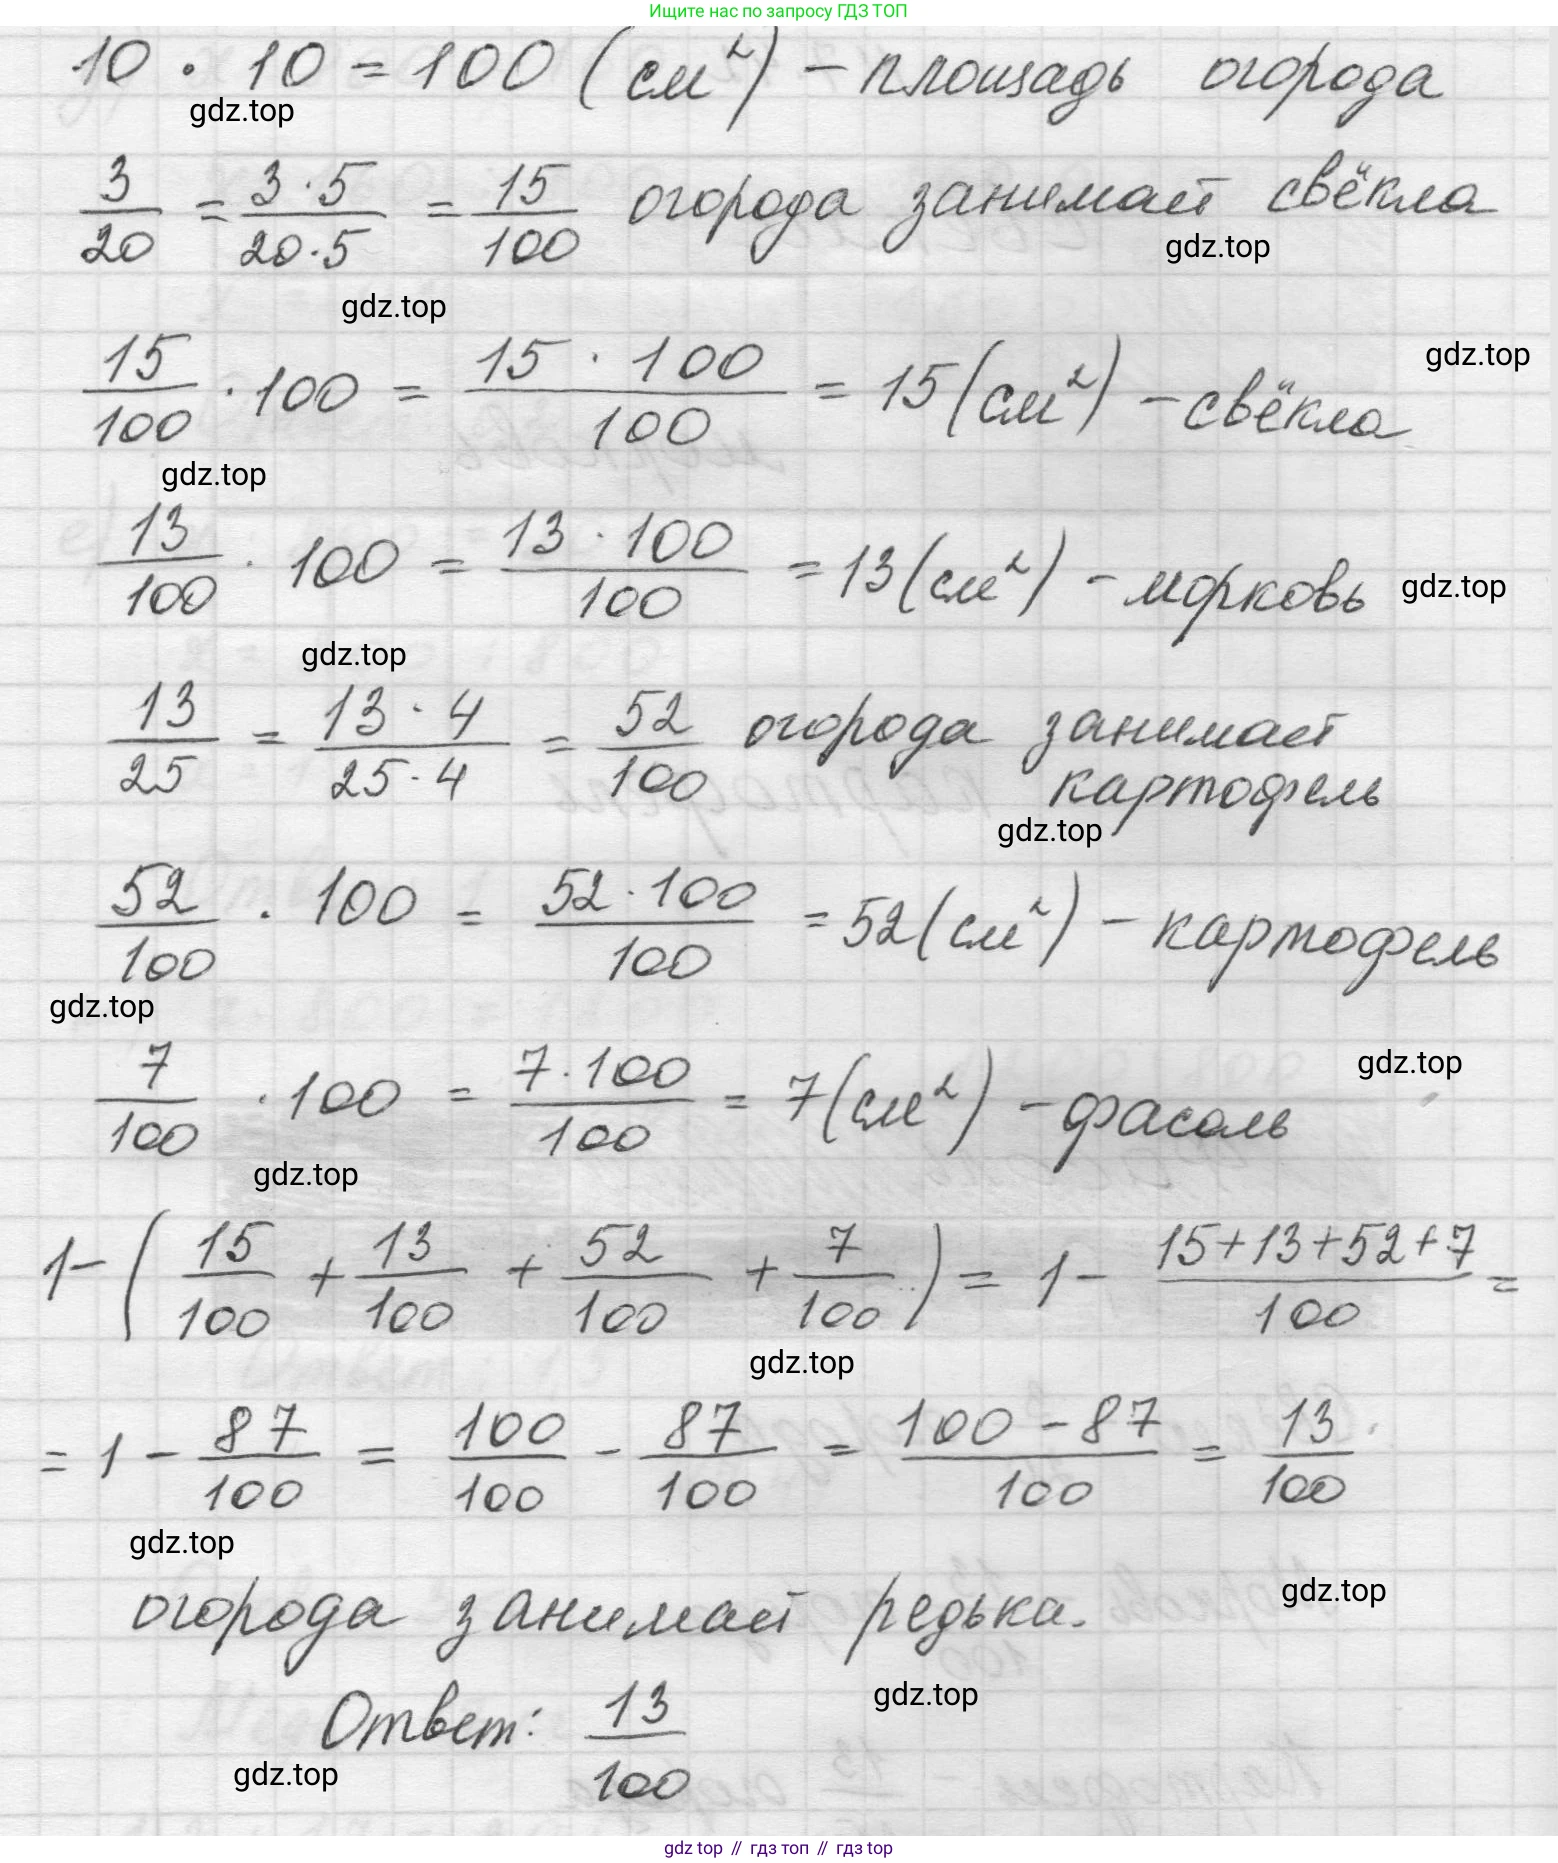 Ищите нас по запросу ГДЗ ТОП
10 · 10 = 100 (см²) – площадь огорода
gdz.top
3/20 = 3·5/20·5 = 15/100 огорода занимает свёкла
gdz.top
gdz.top
15/100 · 100 = 15 · 100/100 = 15 (см²) – свёкла
gdz.top
gdz.top
13/100 · 100 = 13 · 100/100 = 13 (см²) – морковь
gdz.top
gdz.top
13/25 = 13 · 4/25 · 4 = 52/100 огорода занимает
картофель
gdz.top
52/100 · 100 = 52 · 100/100 = 52 (см²) – картофель
gdz.top
7/100 · 100 = 7 · 100/100 = 7 (см²) – фасоль
gdz.top
gdz.top
1 – (15/100 + 13/100 + 52/100 + 7/100) = 1 – 15+13+52+7/100 =
gdz.top
= 1 – 87/100 = 100/100 – 87/100 = 100 – 87/100 = 13/100
gdz.top
gdz.top
огорода занимает редька.
gdz.top
Ответ: 13/100
gdz.top
gdz top // гдз топ // гдз top